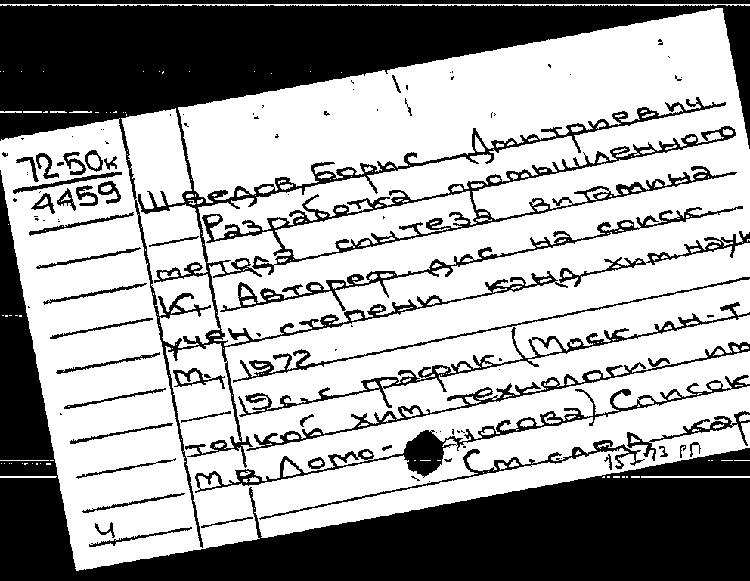 72-50к
4459
Шведов, Борис Дмитриевич.
Разработка промышленного
метода синтеза витамина
К₁. Автореф. дис. на соиск.
учен. степени канд. хим. наук
М., 1972.
19 с. с график. (Моск. ин-т
тонкой хим. технологии им
М.В. Ломо- носова) Список
См. след. кар
15 I 73 РП
Ч